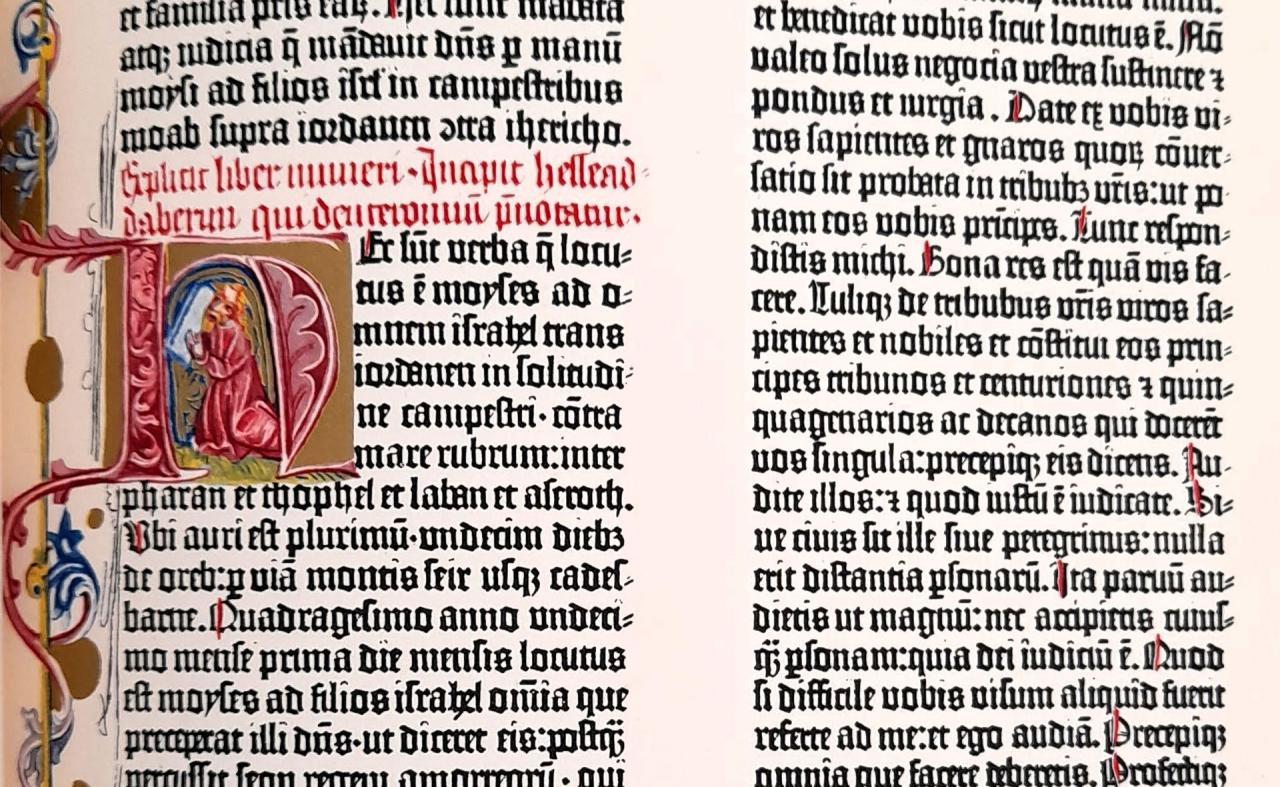 et familia
atq; iudicia q̄ mādauit dn̄s ꝑ manū
moysi ad filios isrl' in campestribus
moab supra iordanen ɔtra ihericho.
Explicit liber numeri. Incipit hellead⸗
dabarim qui deuteronomiū p̄notatur.
Ec sūt verba q̄ locu⸗
tus ē moyses ad o⸗
mnem israhel trans
iordanen in solitudi⸗
ne campestri· cōtra
mare rubrum: inter
pharan et thophel et laban et aseroth.
Ubi auri est plurimū· undecim dieb3
de oreb: ꝑ viā montis seir usq3 cades⸗
barne. Quadragesimo anno undeci⸗
mo mense prima die mensis locutus
est moyses ad filios israhel om̄ia que
preceperat illi dn̄s· ut diceret eis: postq̄ꝫ
percussit seon regem amorreorū· qui
et benedicat vobis sicut locutus ē. Nō
valeo solus negocia vestra sustinere ⁊
pondus et iurgia. Date eꝝ vobis vi⸗
ros sapientes et gnaros quoꝝ cōuer⸗
satio sit probata in tribub3 vr̄is: ut po⸗
nam eos vobis pri̅cipes. Tunc respon⸗
distis michi. Bona res est quā vis fa⸗
cere. Tuliq3 de tribubus vr̄is viros sa⸗
pientes et nobiles et cōstitui eos prin⸗
cipes tribunos et centuriones ⁊ quin⸗
quagenarios ac decanos qui docerēt
vos singula: precepiq3 eis dicens. Au⸗
dite illos: ⁊ quod iustū ē iudicate. Si⸗
ve ciuis sit ille siue peregrinus: nulla
erit distantia ꝑsonarū. Ita paruū au⸗
dietis ut magnū: nec accipietis cuius⸗
q̄ꝫ ꝑsonam: quia dei iudiciū ē. Quod
si difficile vobis visum aliquid fuerit
referte ad me: et ego audiā. Precepiq3
omnia que facere deberetis. Profectiq3